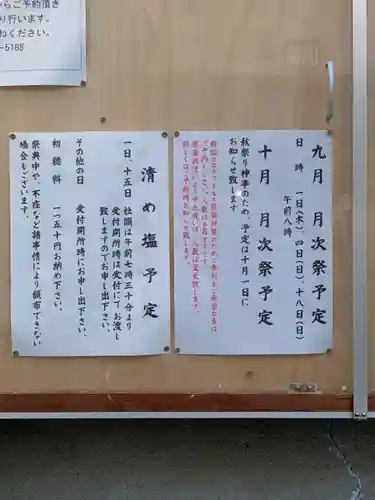 からご予約頂き
り行います。
ねください。
-5188
九月 月次祭予定
日 時 一日(木)、四日(日)、十八日(日)
午前八時
十月 月次祭予定
秋祭り神事のため、予定は十月一日に
お知らせ致します
清め塩予定
一日、十五日 社頭は午前七時三十分より
受付開所時は受付にてお渡し
致しますのでお申し出下さい。
その他の日 受付開所時にお申し出下さい。
初穂料 一つ五十円お納め下さい。
祭典中や、不在など諸事情により頒布できない
場合もございます。